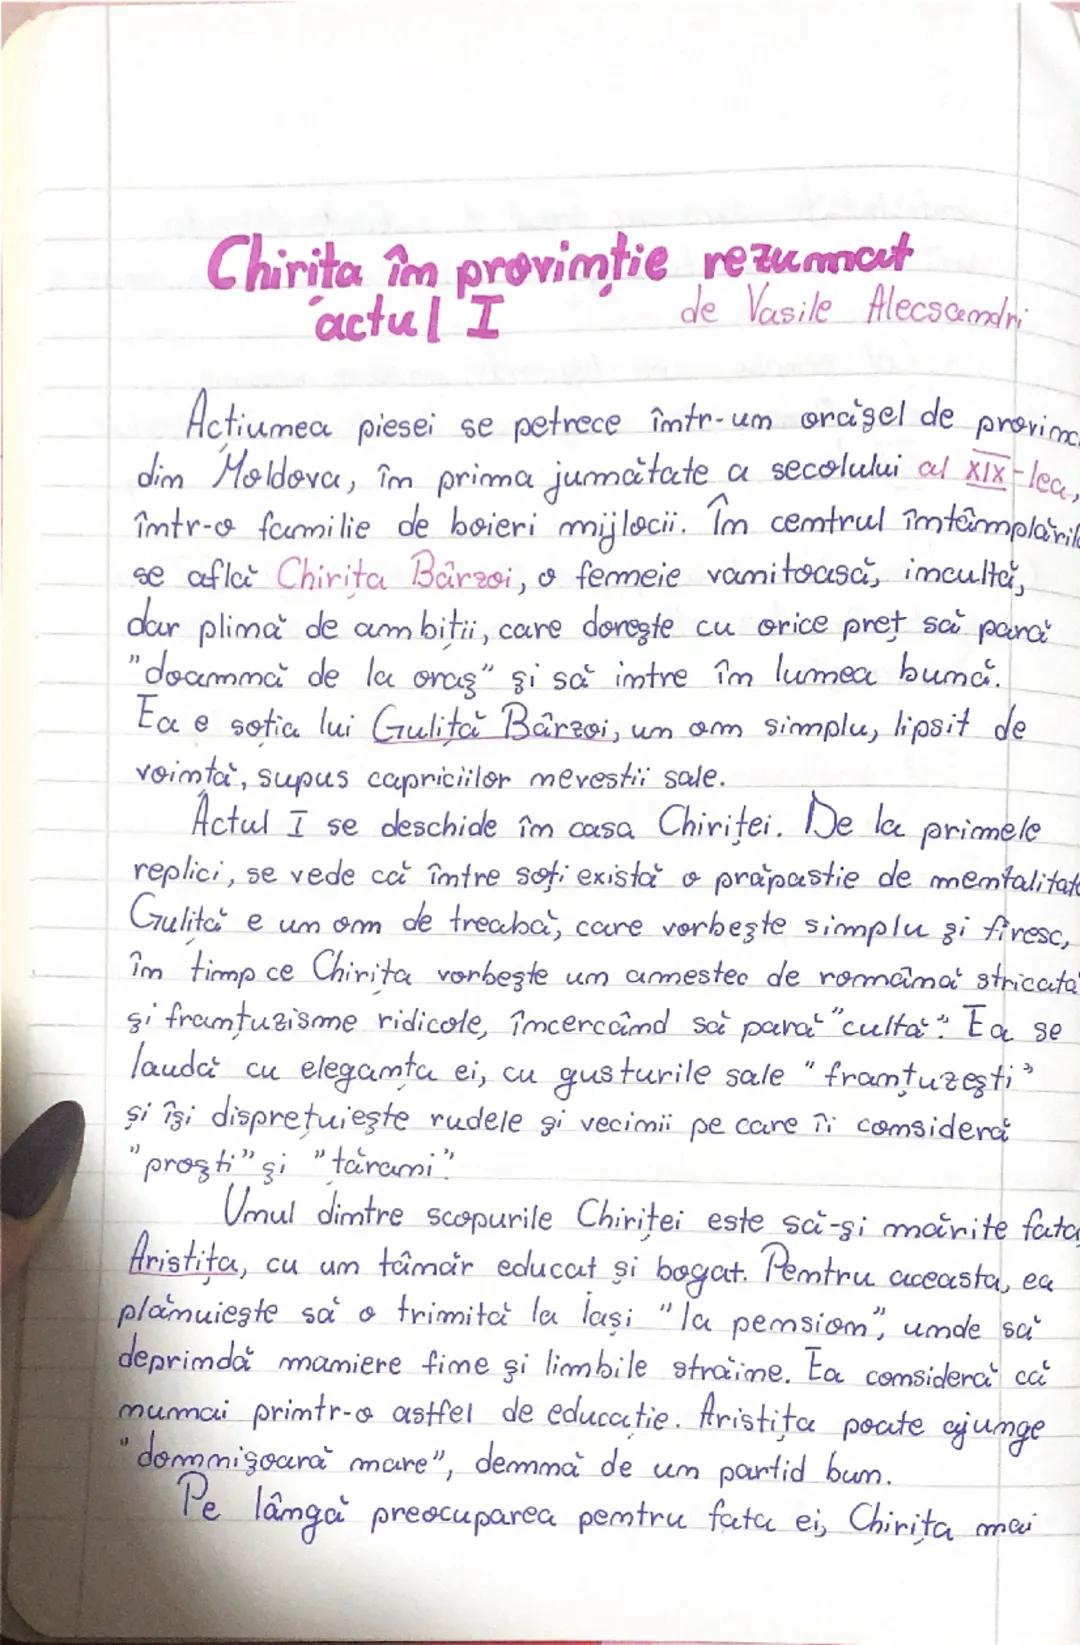 Chirița în provinție rezumat
actul I
de Vasile Alecsandri
Acțiunea piesei se petrece într-un orășel de provinc
din Moldova, în prima jumătate a secolului al XIX-lea,
într-o familie de boieri mijlocii. În centrul întâmplăril
se află Chirița Bârzoi, o femeie vanitoasă, incultă,
dar plină de ambiții, care dorește cu orice preț să pară
"doamnă de la oraș" și să intre în lumea bună.
Ea e soția lui Guliță Bârzoi, un om simplu, lipsit de
voință, supus capriciilor nevestii sale.
Actul I se deschide în casa Chiriței. De la primele
replici, se vede că între soți există o prăpastie de mentalitate
Guliță e un om de treabă, care vorbește simplu și firesc,
în timp ce Chirița vorbește un amestec de română stricată
și franțuzisme ridicole, încercând să pară "cultă". Ea se
laudă cu eleganța ei, cu gusturile sale "franțuzești"
și își disprețuiește rudele și vecinii pe care îi consideră
"proști" și "țărani".
Unul dintre scopurile Chiriței este să-și mărite fata,
Aristița, cu un tânăr educat și bogat. Pentru aceasta, ea
plănuiește să o trimită la Iași "la pension", unde să
deprindă maniere fine și limbile străine. Ea consideră că
numai printr-o astfel de educație. Aristița poate ajunge
"domnișoară mare", demnă de un partid bun.
Pe lângă preocuparea pentru fata ei, Chirița mai